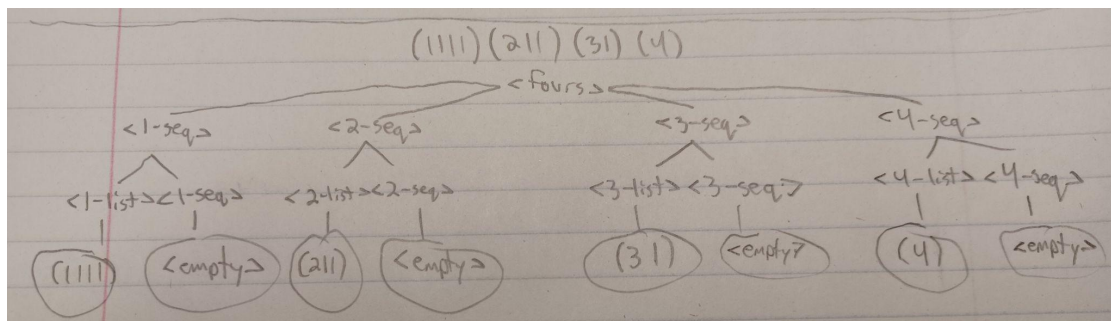 (1111) (211) (31) (4)
<fours>
<1-seq> <2-seq> <3-seq> <4-seq>
<1-list> <1-seq> <2-list> <2-seq> <3-list> <3-seq> <4-list> <4-seq>
(1111) <empty> (211) <empty> (31) <empty> (4) <empty>